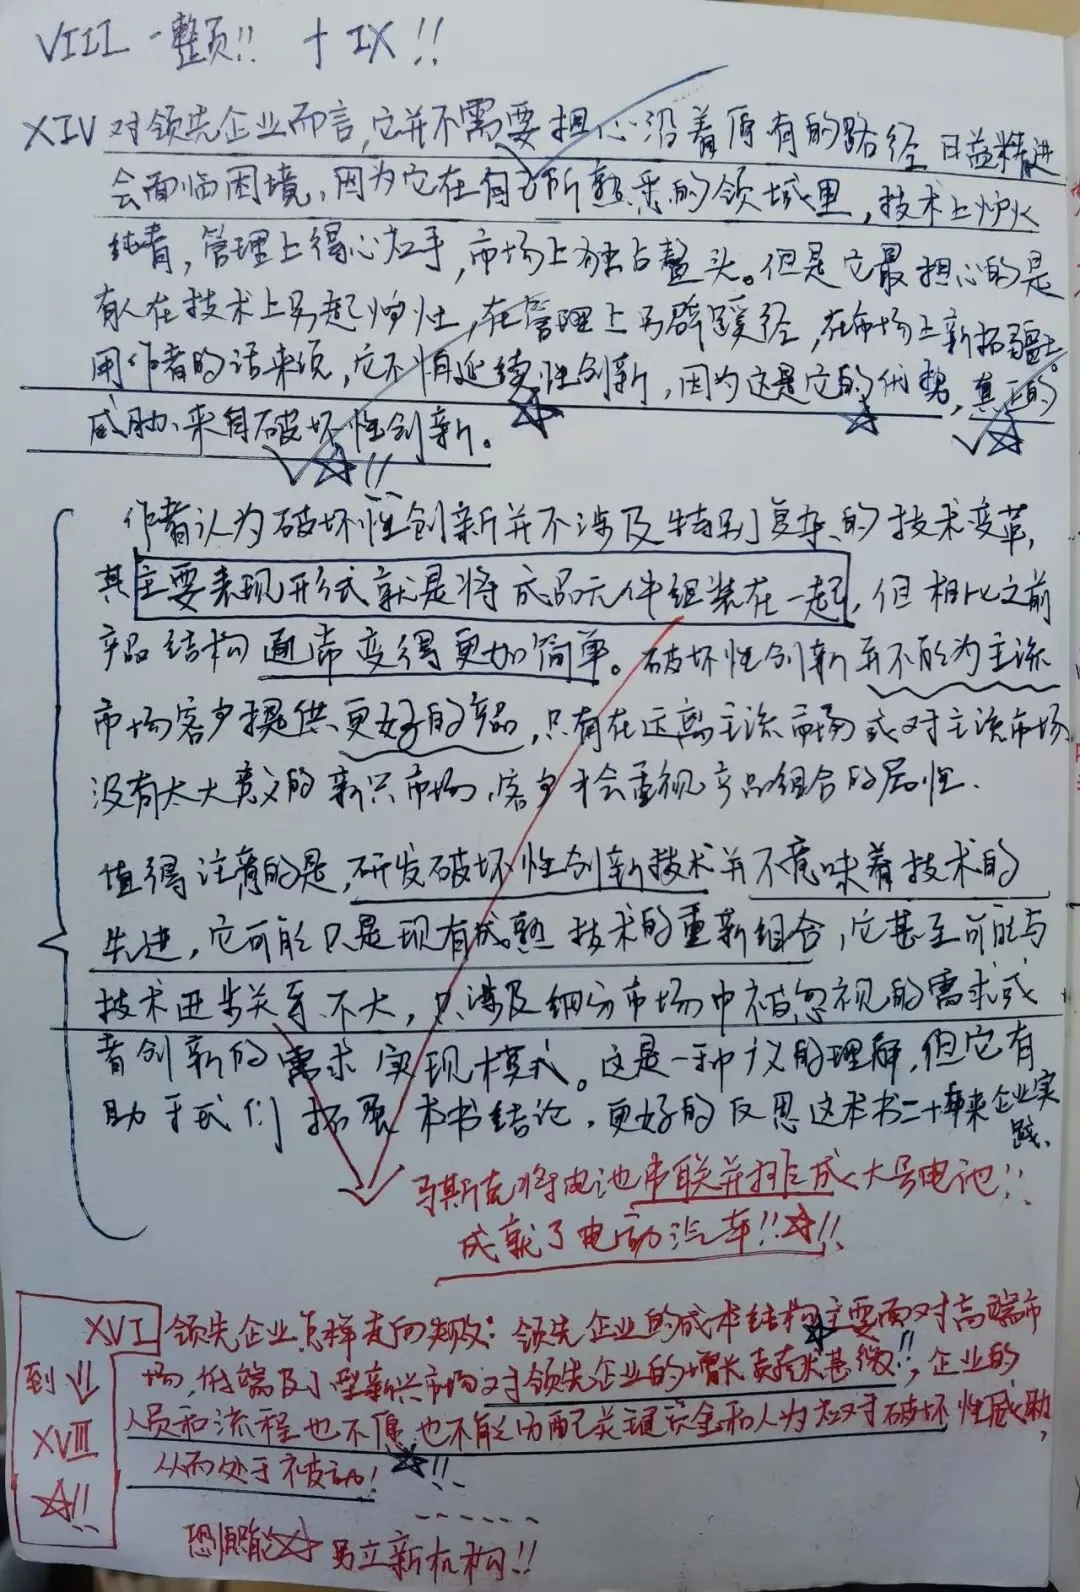 VIII 一整页!! + IX!!
XIV 对领先企业而言,它并不需要担心沿着原有的路径日益精进
会面临困境,因为它在自己所熟悉的领域里,技术上炉火
纯青,管理上得心应手,市场上独占鳌头。但是它最担心的是
有人在技术上另起炉灶,在管理上另辟蹊径,在市场上新拓疆土。
用作者的话来说,它不怕延续性创新,因为这是它的优势,真正的
威胁来自破坏性创新。
!!
作者认为破坏性创新并不涉及特别复杂的技术变革,
其主要表现形式就是将成品元件组装在一起,但相比之前
产品结构通常变得更加简单。破坏性创新并不能为主流
市场客户提供更好的产品,只有在远离主流市场或对主流市场
没有太大意义的新兴市场,客户才会重视产品组合的属性.
值得注意的是,研发破坏性创新技术并不意味着技术的
先进,它可能只是现有成熟技术的重新组合,它甚至可能与
技术进步关系不大,只涉及细分市场中被忽视的需求或
者创新的需求实现模式。这是一种广义的理解,但它有
助于我们拓展本书结论,更好的反思这本书二十年来企业实
践.
马斯克将电池串联并排成大号电池!!
成就了电动汽车!!☆!!
XVI 领先企业怎样走向失败: 领先企业的成本结构主要面对高端市
场,低端及小型新兴市场对领先企业的增长贡献甚微!!,企业的
人员和流程也不愿也不能分配关键资金和人力应对破坏性威胁,
从而处于被动! ☆!!
到!!
XVIII
☆!!
☆ 另立新机构!!